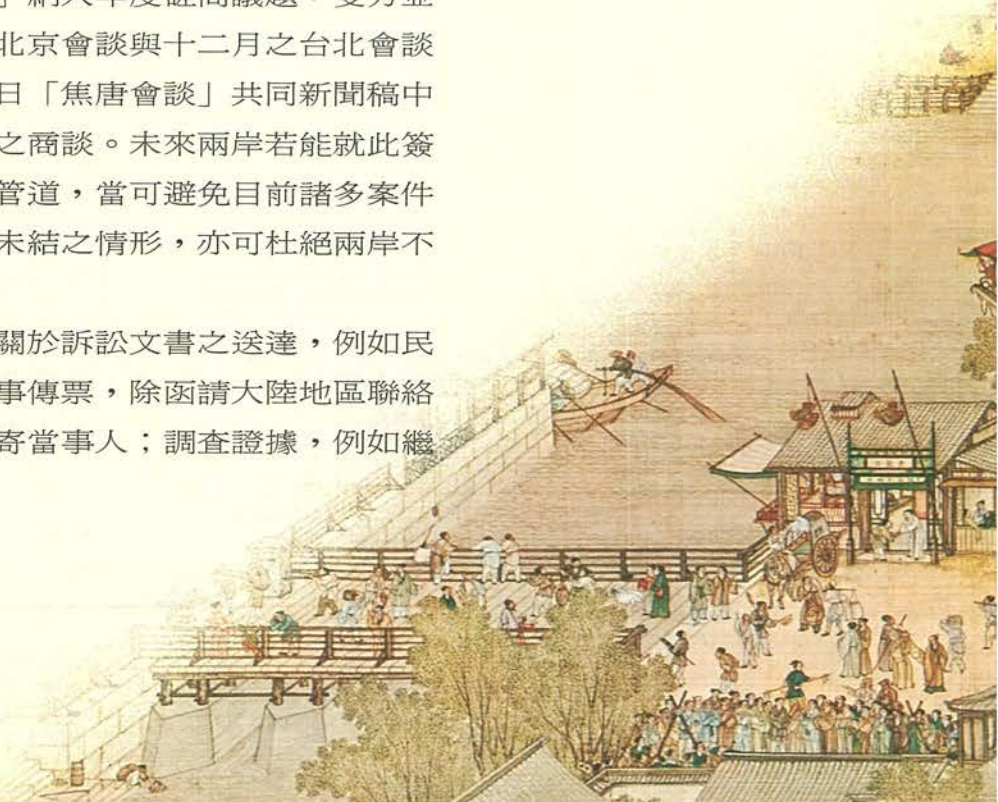 」納入年度磋商議題，雙方並
北京會談與十二月之台北會談
日「焦唐會談」共同新聞稿中
之商談。未來兩岸若能就此簽
管道，當可避免目前諸多案件
未結之情形，亦可杜絕兩岸不
關於訴訟文書之送達，例如民
事傳票，除函請大陸地區聯絡
寄當事人；調查證據，例如繼